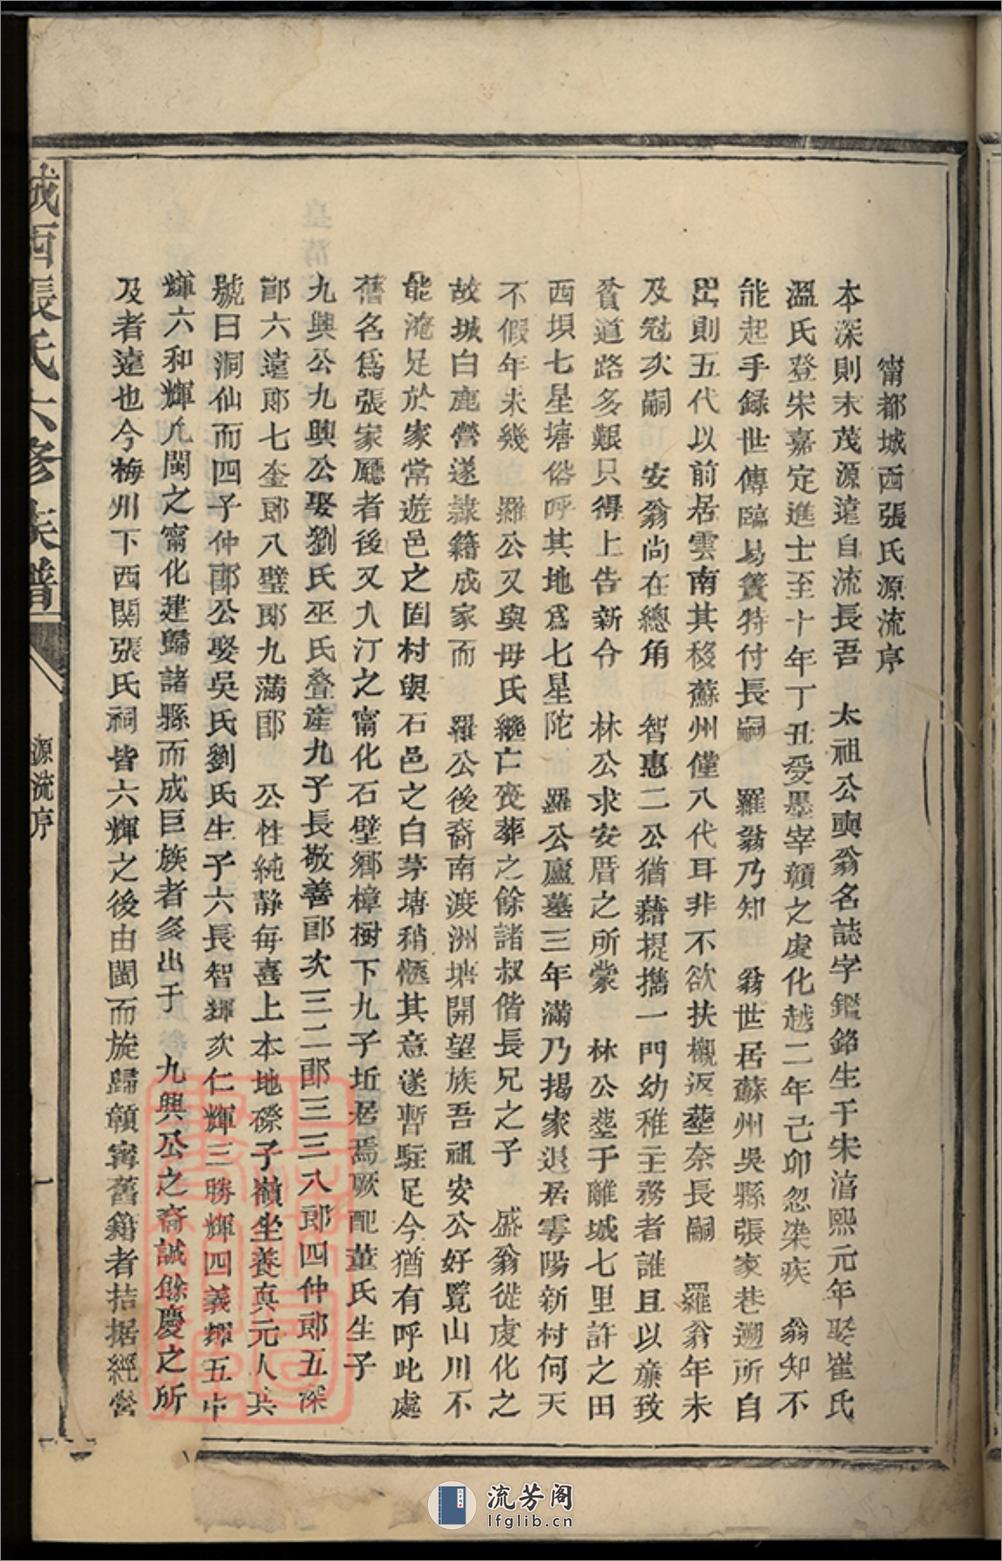 甯都城西張氏源流序
本深則末茂源遠自流長吾 太祖公奭翁名誌字鑑銘生于宋淯熙元年娶崔氏
溫氏登宋嘉定進士至十年丁丑受墨宰贛之虔化越二年己卯忽染疾 翁知不
能起手録世傳臨易簀特付長嗣 羅翁乃知 翁世居蘇州吳縣張家巷遡所自
出則五代以前居雲南其移蘇州僅八代耳非不欲扶櫬返塟奈長嗣 羅翁年未
及冠次嗣 安翁尚在總角 智惠二公猶藉提攜一門幼稚主務者誰且以亷致
貧道路多艱只得上告新令 林公求安厝之所蒙 林公塟于離城七里許之田
西垻七星塘俗呼其地爲七星陀 羅公廬墓三年滿乃揭家退居雩陽新村何天
不假年未幾 羅公又與母氏繼亡喪葬之餘諸叔偕長兄之子 盛翁從虔化之
故城白鹿營遂隷籍成家而 羅公後裔南渡洲塘開望族吾祖安公好覽山川不
能淹足於家常遊邑之固村與石邑之白茅塘稍愜其意遂暫駐足今猶有呼此處
舊名爲張家廳者後又入汀之甯化石壁鄉樟樹下九子坵居焉厥配董氏生子
九興公九興公娶劉氏巫氏叠產九子長敬善郎次三二郎三三八郎四仲郎五深
郎六遠郎七奎郎八璧郎九滿郎 公性純静每喜上本地磜子嶺坐養真元人共
號曰洞仙而四子仲郎公娶吳氏劉氏生子六長智輝次仁輝三勝輝四義輝五中
輝六和輝凡閩之甯化建歸諸縣而成巨族者多出于 九興公之裔誠餘慶之所
及者遠也今梅州下西関張氏祠皆六輝之後由閩而旋歸贛甯舊籍者拮据經營
城西張氏六修族譜
源流序
一
流芳阁
lfglib.cn